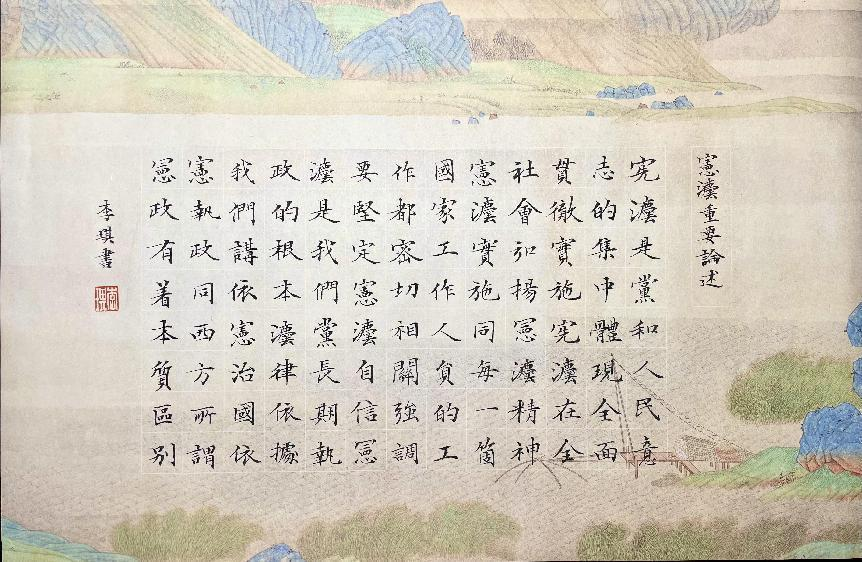 憲灋重要論述
宪灋是黨和人民意
志的集中體現全面
貫徹實施宪灋在全
社會弘揚憲灋精神
憲灋實施同每一箇
國家工作人員的工
作都密切相關強調
要堅定憲灋自信憲
灋是我們黨長期執
政的根本灋律依據
我們講依憲治國依
憲執政同西方所謂
憲政有着本質區別
李琪書